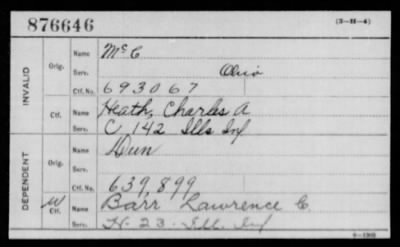 876646 (3-H-4)
INVALID
Orig. Name McC
Serv. Ohio
Ctf. No. 693067
Ctf. Name Heath, Charles A
Serv. C 142 Ills Inf
DEPENDENT
Orig. Name Dun
Serv.
Ctf. No. 639,899
W Ctf. Name Barr Lawrence E.
Serv. H-23-Ill. Inf